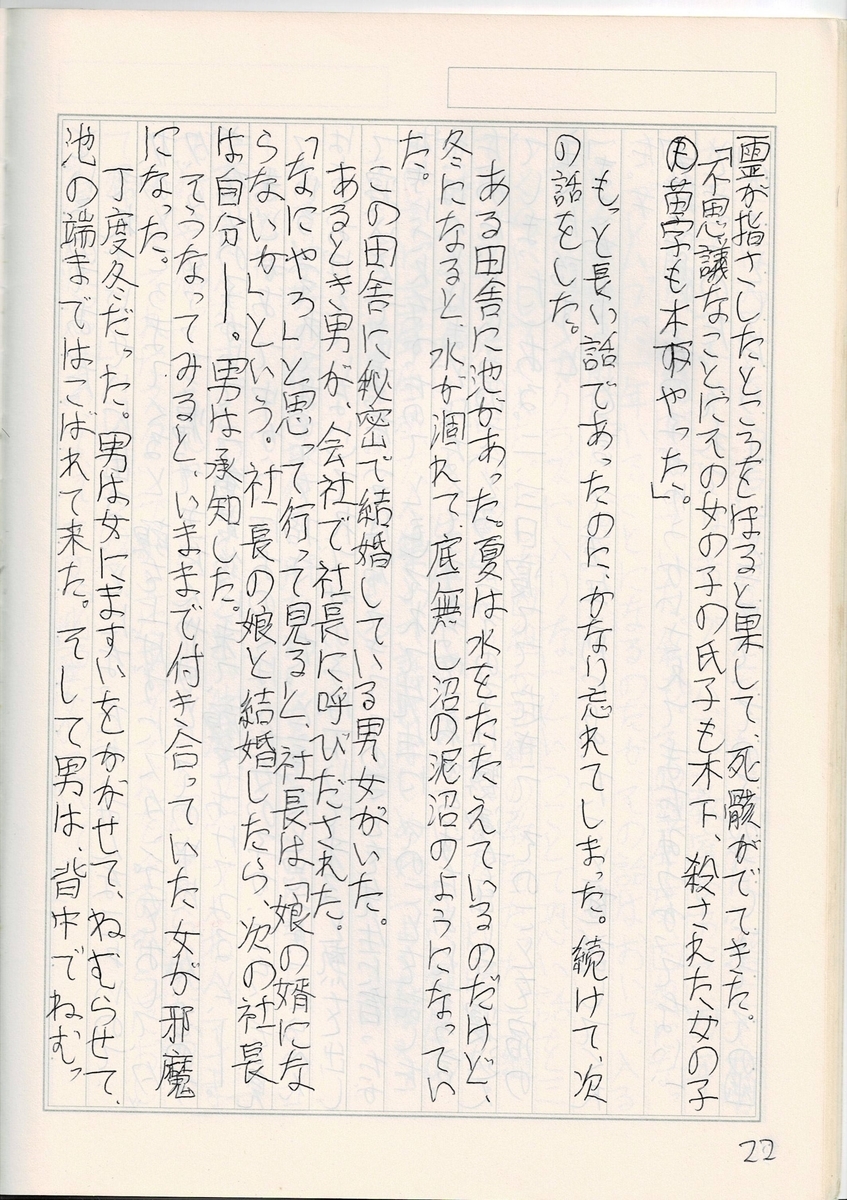 霊が指さしたところをほると果して、死骸がでてきた。
「不思議なことにその女の子の氏子も木下、殺された女の子
の苗字も木下やった」。
もっと長い話であったのに、かなり忘れてしまった。続けて、次
の話をした。
ある田舎に池があった。夏は水をたたえているのだけど、
冬になると、水が涸れて、底無し沼の泥沼のようになってい
た。
この田舎に秘密で結婚している男女がいた。
あるとき男が、会社で社長に呼びだされた。
「なにやろ」と思って行って見ると、社長は「娘の婿にな
らないか」という。社長の娘と結婚したら、次の社長
は自分――。男は承知した。
そうなってみると、いままで付き合っていた女が邪魔
になった。
丁度冬だった。男は女にますいをかがせて、ねむらせて、
池の端まではこばれて来た。そして男は、背中でねむっ
22